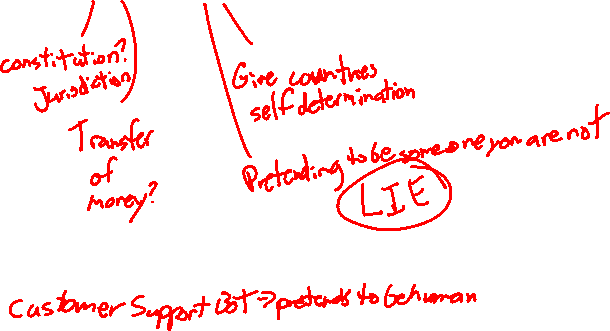 constitution?
Jurisdiction
Transfer
of
money?
Give countries
self determination
Pretending to be someone you are not
LIE
Customer Support Bot => pretends to be human